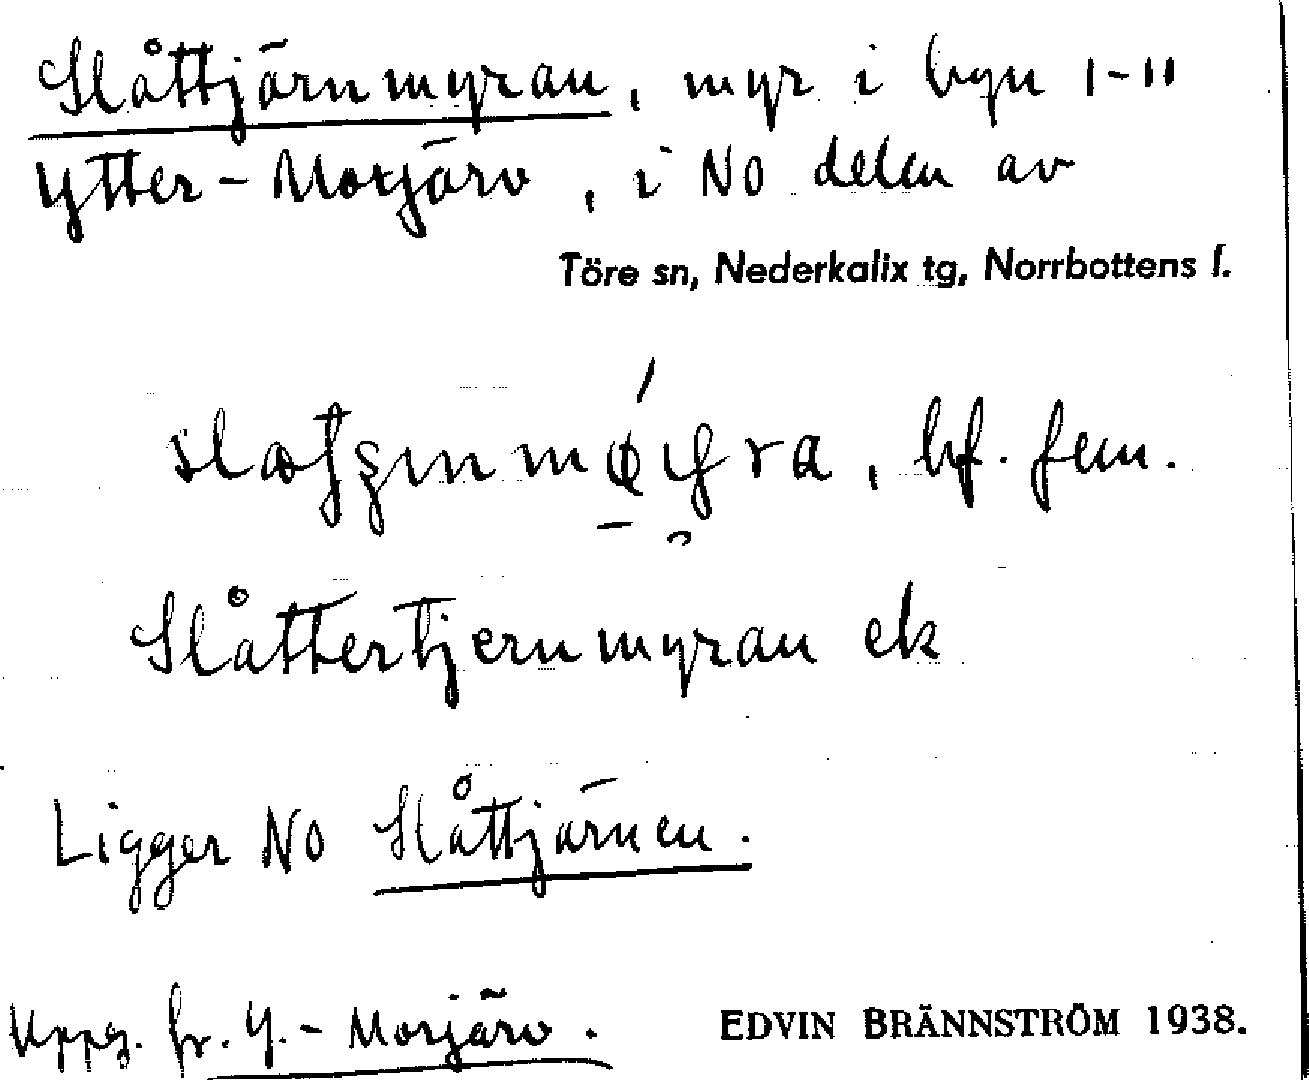 Slåttjärnmyran, myr i byn 1-11
Ytter-Morjärv, i NO delen av
Töre sn, Nederkalix tg, Norrbottens l.
bf. fem.
Slåttertjernmyran ek
Ligger NO Slåttjärnen.
Uppg. fr. Y.-Morjärv.
EDVIN BRÄNNSTRÖM 1938.